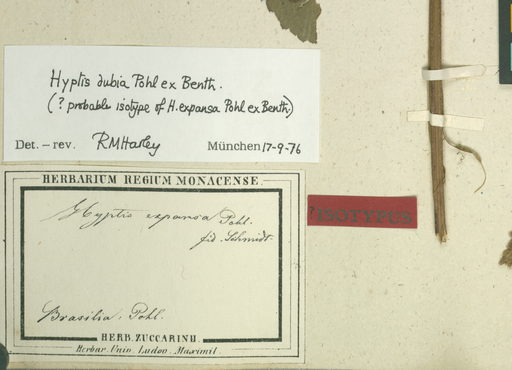 Hyptis dubia Pohl ex Benth.
(? probable isotype of H. expansa Pohl ex Benth.)
Det. – rev. RMHarley München 17-9-76
HERBARIUM REGIUM MONACENSE.
Hyptis expansa Pohl.
fid. Schmidt.
Brasilia. Pohl.
HERB. ZUCCARINII.
Herbar. Univ. Ludov. Maximil.
? ISOTYPUS